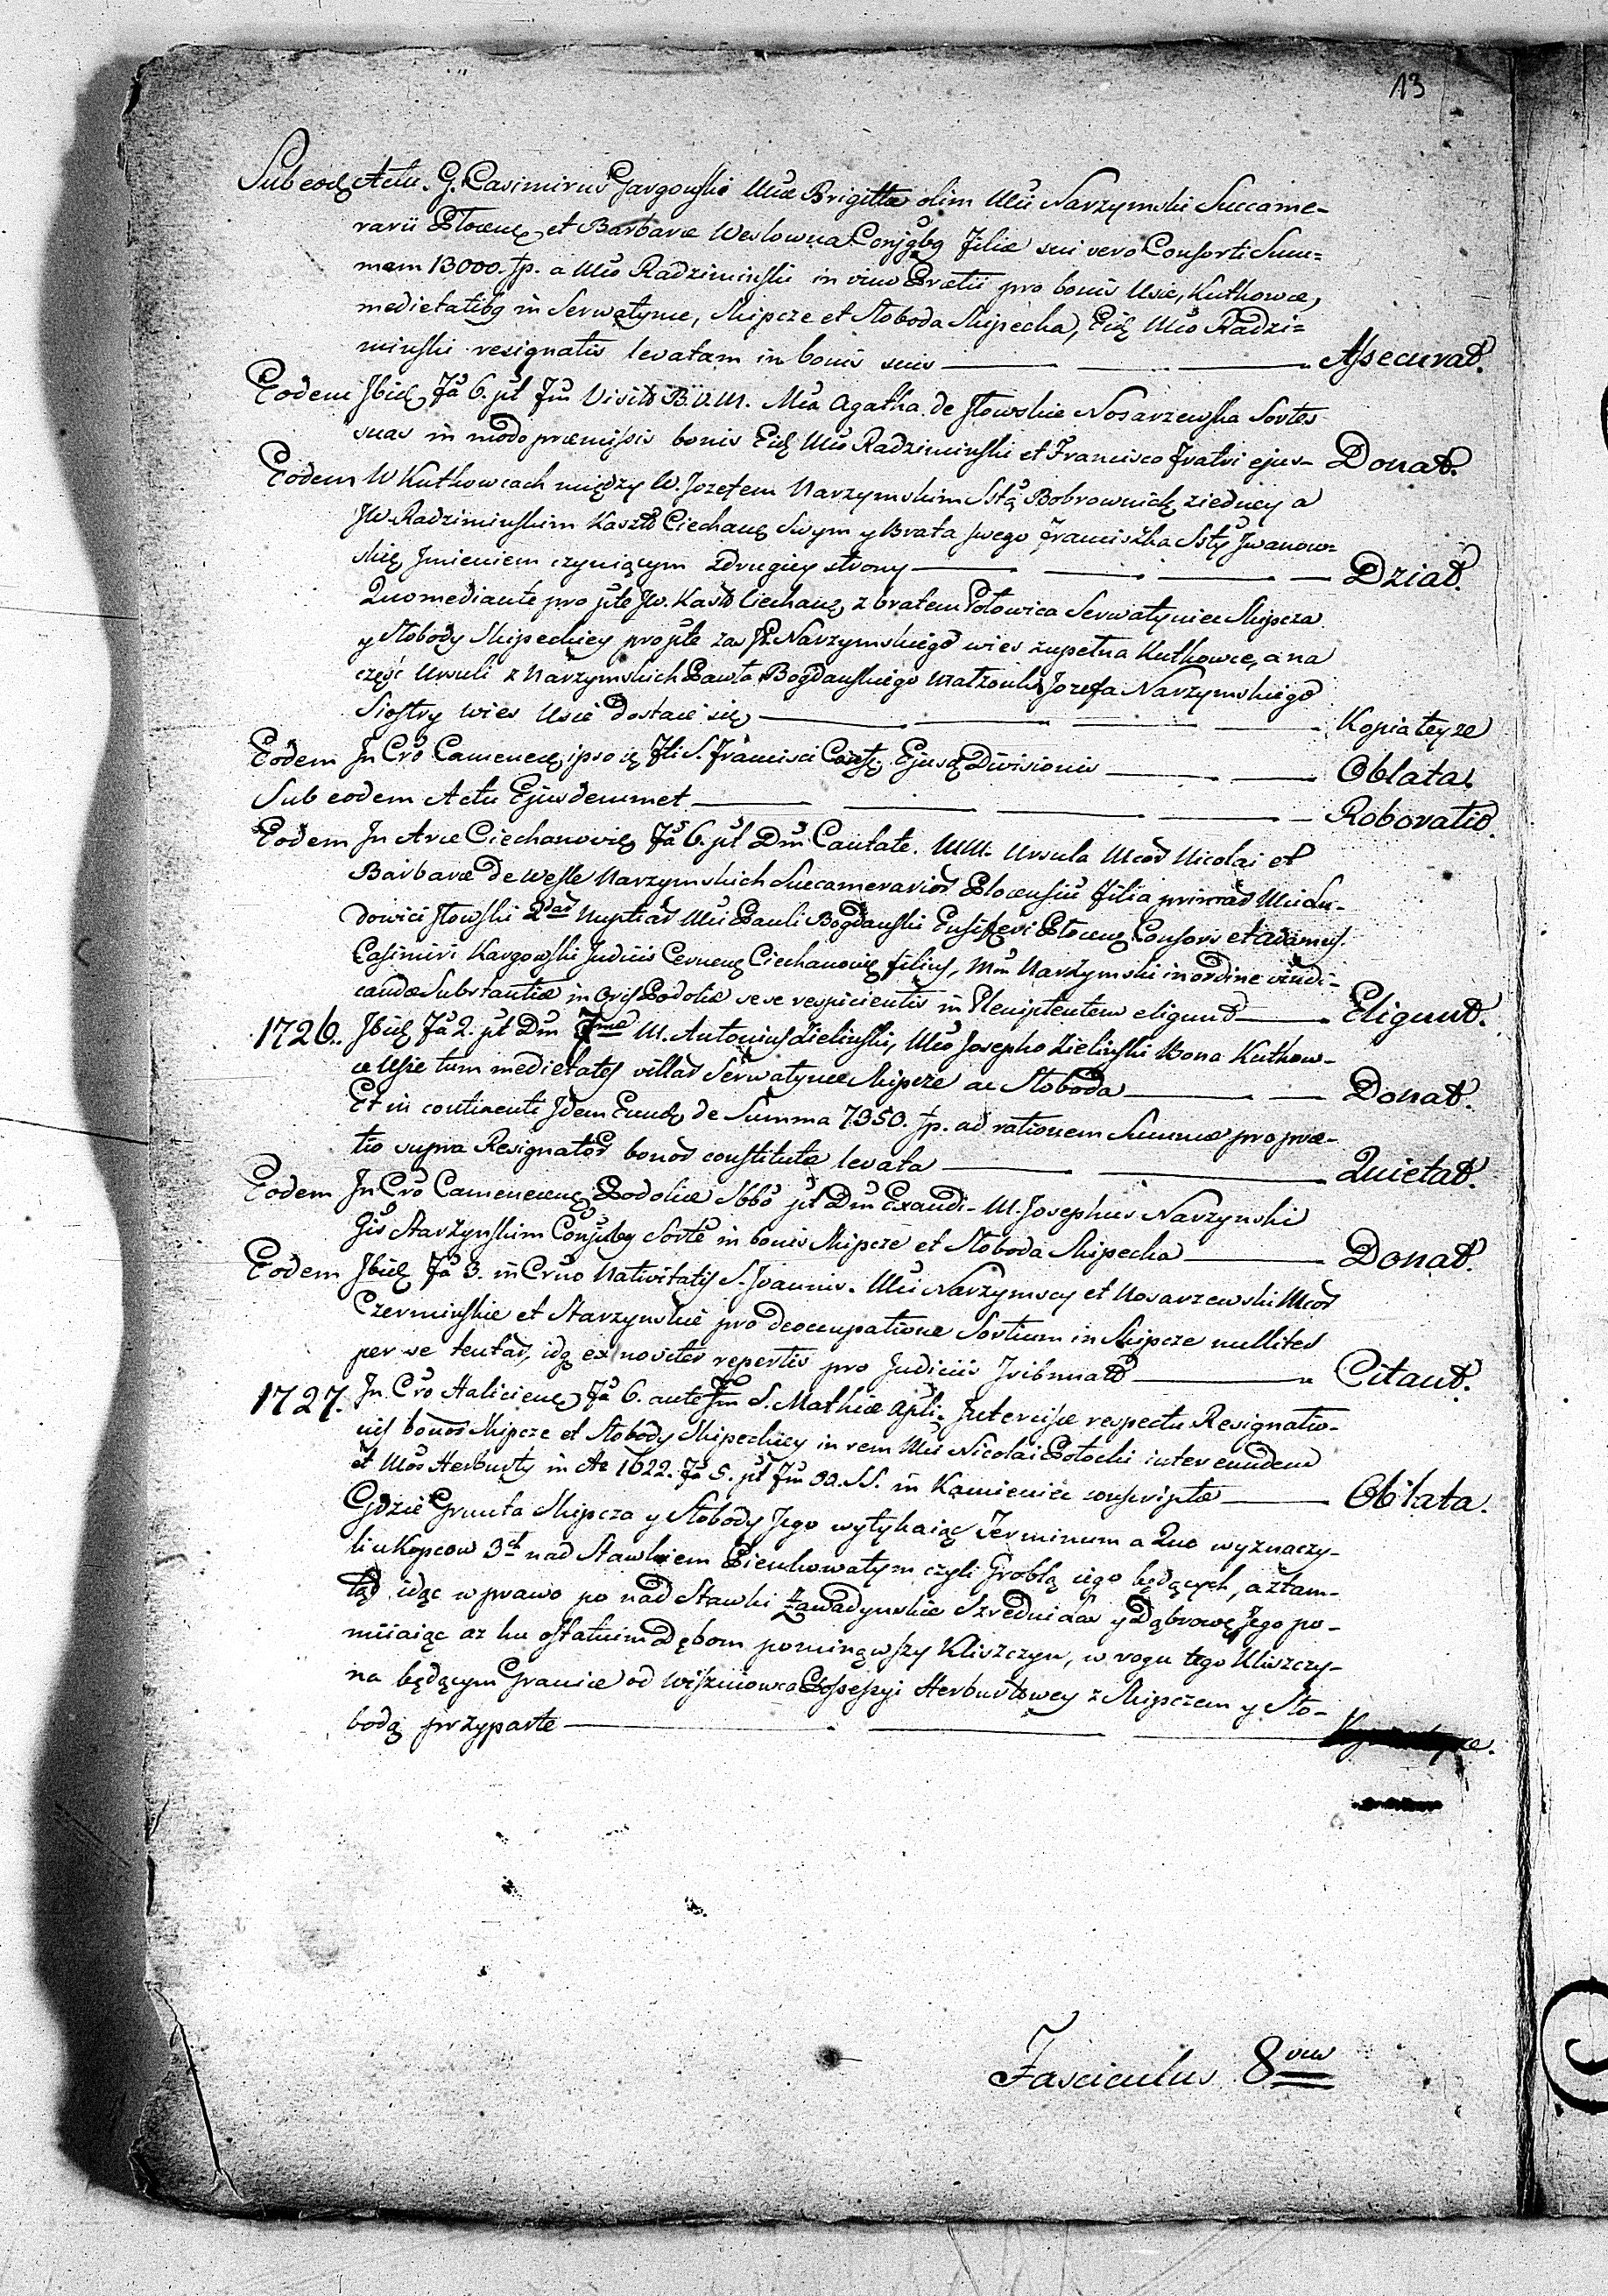 13
Sub eod Actu. G. Casimirus Gargowski Mcæ Brigittæ olim Mci Narzymski Succame-
rarii Plocens et Barbaræ Weslowna Conjgbq filiæ sui vero Consorti Sum-
mam 13000. fp. a Mco Radziminski in vim Prætii pro bonis Usie, Kutkowce,
medietatibq in Serwatynce, Skipcze et Słoboda Skipecka, Eid Mco Radzi-
minski resignatis levatam in bonis suis — Assecurat.
Eodem Ibid Fa 6. pt Fm Visitõ B.V.M. Mca Agatha de Iłowskie Nosarzewska Sortes
suas in modo præmissis bonis Eid Mco Radziminski et Francisco Fratri ejus — Donat.
Eodem W Kutkowcach między W. Jozefem Narzymskim Sstą Bobrownick ziedney a
JW. Radziminskim Kasztt Ciechan Swym y Brata swego Franciszka Ssty Iwanow-
skię Imieniem czyniącym zdrugiey strony — Dział.
Quo mediante pro pte JW. Kaszt Ciechan z bratem Połowica Serwatyniec Skipcza
y Słobody Skipeckiey pro pte zas JP. Narzymskiego wies zupełna Kutkowce, a na
część Ursuli z Narzymskich Pawła Bogdanskiego Małżonki Jozefa Narzymskiego
Siostry wies Usie dostaie się — Kopia teyze
Eodem In Cro Camenecen ipso d Fti S. Francisci Conf. Ejusd Divisionis — Oblata.
Sub eodem Actu Ejusdemmet — Roboratio.
Eodem In Arce Ciechanovien Fa 6. pt Dm Cantate. MM. Ursula Mcor Nicolai et
Barbaræ de Wessle Narzymskich Succamerarior Plocensiu filia primar Mci Lu-
dovici Iłowski 2dar Nuptiar Mci Pauli Bogdanski Ensiferi Plocens Consors et Adamus
Casimiri Kargowski Judicis Cernens Ciechanovien filius, Mm Narzymski in ordine vindi-
candæ Substantiæ in Oris Podoliæ sese respicientis in Pleniptentem eligunt — Eligunt.
1726. Ibid Fa 2. pt Dm 7mæ M. Antonius Zielinski, Mco Josepho Zielinski Bona Kutkow-
ce Usie tum medietates villar Serwatynce Skipcze ac Słoboda — Donat.
Et in continenti Idem Eund de Summa 7350. fp. ad rationem Summæ pro præ-
tio supra Resignator bonor constitutæ levata — Quietat.
Eodem In Cro Camenecens Podoliæ Sbbo pt Dm Exaudi. M. Josephus Narzynski
Gis Starzynskim Conjubq Sortẽ in bonis Skipcze et Słoboda Skipecka — Donat.
Eodem Ibid Fa 3. in Crno Nativitatis S. Joannis. Mci Narzymscy et Nosarzewski Mcos
Czerminskie et Starzynskie pro deoccupatione Sortium in Skipcze nulliter
per se tentar, idq ex noviter repertis pro Judiciis Tribunalt — Citant.
1727. In Cro Haliciens Fa 6. ante Fm S. Mathiæ Apli. Intercisæ respectu Resignatio-
nis bonor Skipcze et Słobody Skipeckiey in rem Mci Nicolai Potocki inter eundem
et Mcos Herburty in Ao 1622. Fa 5. pt Fm OO. SS. in Kamieniec conscriptæ — Oblata.
Gdzie Grunta Skipcza y Słobody Jego wytykaiąc Terminum a Quo wyznaczy-
li u Kopcow 3ch nad Stawkiem Pienkowatym czyli Groblą iego będących, a ztam-
tąd idąc w prawo po nad Stawki Zawadynskie Szrednia Las y Dąbrowę Jego po-
miiaiąc az ku ostatnim Dębom pominąwszy Kliszczyn, w rogu tego Kliszczy-
na będącym Granice od Wiszniowca Possessyi Herburtowey z Skipczem y Sło-
bodą przyparte —
Fasciculus 8vus